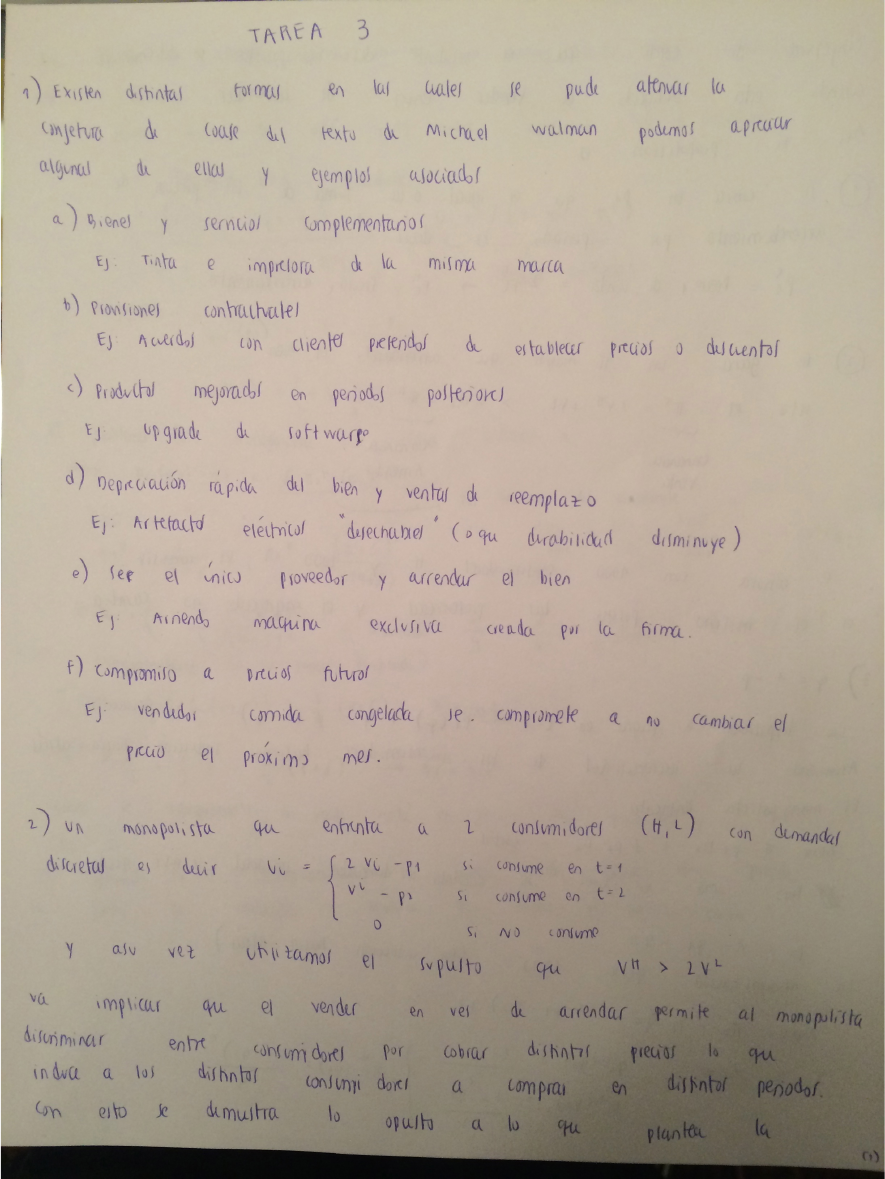 TAREA 3
1) Existen distintas formas en las cuales se pude atenuar la
conjetura de coase del texto de Michael Walman podemos apreciar
algunas de ellas y ejemplos asociados
a) Bienes y servicios complementarios
Ej: Tinta e impresora de la misma marca
b) Provisiones contractuales
Ej Acuerdos con clientes preferidos de establecer precios o descuentos
c) Productos mejorados en periodos posteriores
Ej: upgrade de software
d) Depreciación rápida del bien y ventas de reemplazo
Ej: Artefactos eléctricos "desechables" (o que durabilidad disminuye)
e) Ser el único proveedor y arrendar el bien
Ej Arriendo maquina exclusiva creada por la firma.
f) compromiso a precios futuros
Ej: vendedor comida congelada se. compromete a no cambiar el
precio el próximo mes.
2) un monopolista que enfrenta a 2 consumidores (H, L) con demandas
discretas es decir Ui = { 2 Vi - p1 si consume en t=1
Vi - p2 si consume en t=2
0 si NO consume
Y asu vez utilizamos el supusto que V^H > 2V^L
va implicar que el vender en ves de arrendar permite al monopolista
discriminar entre consumidores por cobrar distintos precios lo que
induce a los distintos consumidores a comprar en distintos periodos.
Con esto se demustra lo opusto a lo que plantea la
(1)